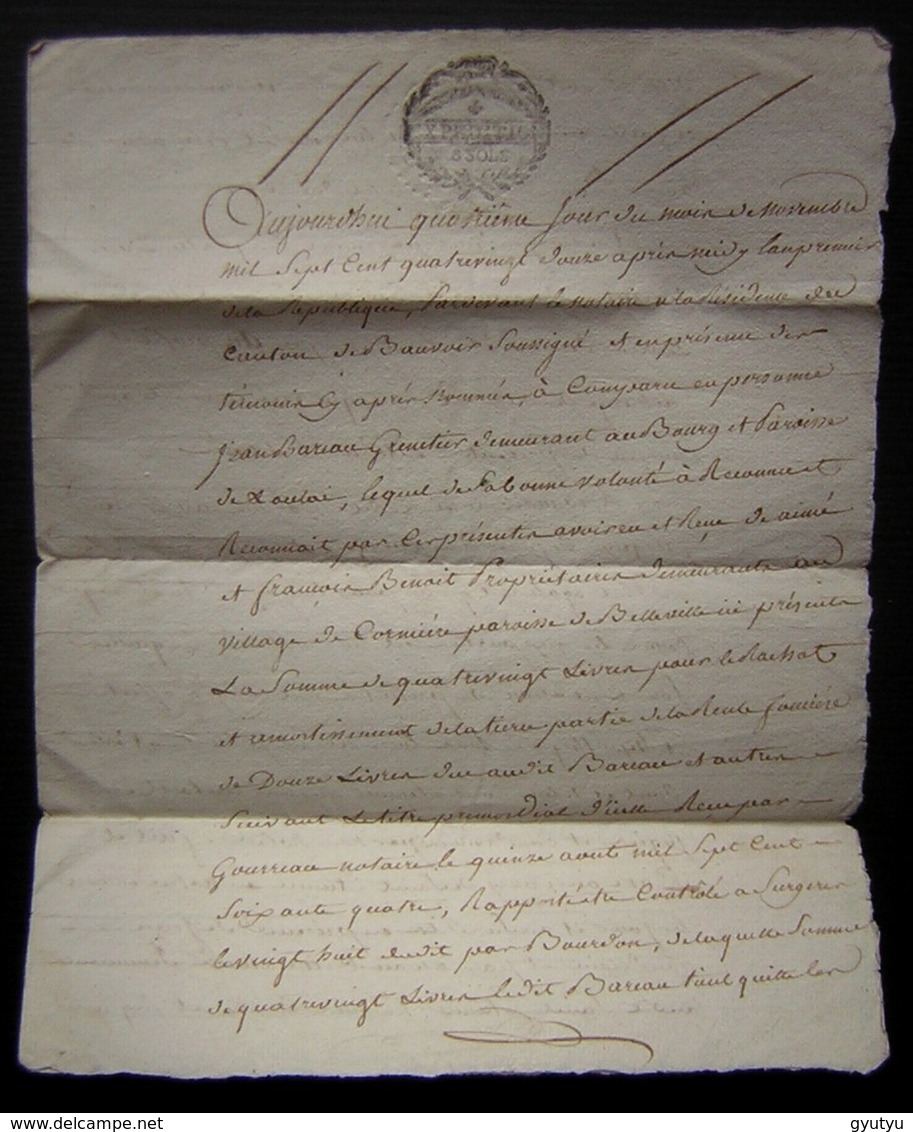 EXPEDITION
8 SOLS
Aujourdhui quatrième jour du mois de Novembre
mil Sept Cent quatrevingt douze après midy lan premier
de la République, Pardevant le notaire a la Résidence du
Canton de Bauvoir Soussigné et en présence des
témoins Cy après Nommés, à Comparu en personne
Jean Bareau Greneties demeurant au Bourg et Paroisse
de, lequel de Sa bonne volonté à Reconnu et
Reconnait par Ces présentes avoir eu et Reçu de aimé
et françois Benoit Propriétaires demeurants au
village de Cormiére paroisse de Belleville ici présents
La Somme de quatrevingt Livres pour le Rachat
et remortissement de la tierce partie de la Rente fonciére
de Douze Livres due audit Bareau et autres
Suivant Le titre primordial d'icelle Reçu par
Gourreau notaire le quinze aout mil Sept Cent
Soixante quatre, Rapporté etre Controlé a Surgeres
le vingt huit dudit par Bourdon, de laquelle Somme
de quatrevingt Livres ledit Bareau tient quitte les
gyutyu